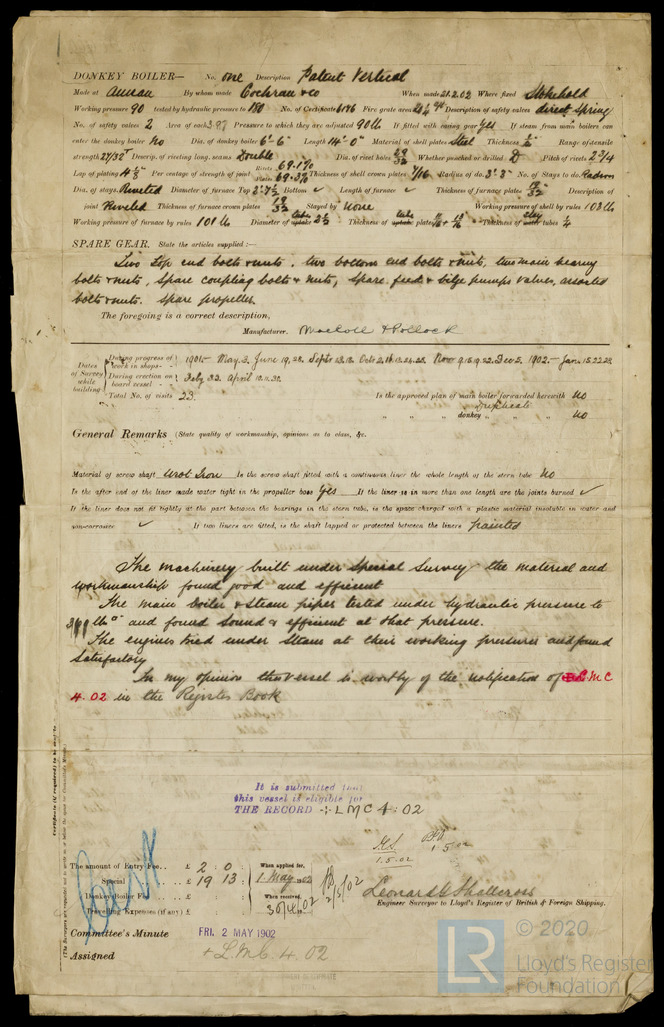 DONKEY BOILER— No. one Description Patent Vertical
Made at Annan By whom made Cochran & Co When made 21.2.02 Where fixed Stokehold
Working pressure 90 tested by hydraulic pressure to 180 No. of Certificate 6196 Fire grate area Description of safety valves direct spring
No. of safety valves 2 Area of each 3.97 Pressure to which they are adjusted 90 lb If fitted with easing gear Yes If steam from main boilers can
enter the donkey boiler No Dia. of donkey boiler 6'-6" Length 14'-0" Material of shell plates Steel Thickness Range of tensile
strength 27/32T Descrip. of riveting long. seams Double Dia. of rivet holes 29/32 Whether punched or drilled D Pitch of rivets 2 3/4
Lap of plating 4 1/8 Per centage of strength of joint Rivets 69.1% Plates 69.3% Thickness of shell crown plates 9/16 Radius of do. 3'.3" No. of Stays to do.
Dia. of stays Riveted Diameter of furnace Top Bottom ✓ Length of furnace ✓ Thickness of furnace plates Description of
joint Riveted Thickness of furnace crown plates 19/32 Stayed by None Working pressure of shell by rules 103 lb
Working pressure of furnace by rules 101 lb Diameter of tube 2 1/2 Thickness of tube plates Thickness of tubes 1/4
SPARE GEAR. State the articles supplied :—
Two top end bolts & nuts, two bottom end bolts & nuts, two main bearing
bolts & nuts, spare coupling bolts & nuts, spare feed & bilge pumps valves, assorted
bolts & nuts. spare propeller.
The foregoing is a correct description,
Manufacturer. MacColl & Pollock
Dates of Survey while building
During progress of work in shops - - 1901:- May. 3. June 19.28. Sept
During erection on board vessel - Feby April
Total No. of visits 23 Is the approved plan of main boiler forwarded herewith No
Duplicate
" " " donkey " " " No
General Remarks (State quality of workmanship, opinions as to class, &c.
Material of screw shaft Wrot Iron Is the screw shaft fitted with a continuous liner the whole length of the stern tube No
Is the after end of the liner made water tight in the propeller boss Yes If the liner is in more than one length are the joints burned ✓
If the liner does not fit tightly at the part between the bearings in the stern tube, is the space charged with a plastic material insoluble in water and
non-corrosive ✓ If two liners are fitted, is the shaft lapped or protected between the liners painted
The machinery built under Special Survey the material and
workmanship found good and efficient
The main boiler & steam pipes tested under hydraulic pressure to
lbs and found sound & efficient at that pressure.
The engines tried under steam at their working pressures and found
satisfactory
In my opinion this vessel is worthy of the notification of LMC
4.02 in the Register Book
It is submitted that
this vessel is eligible for
THE RECORD + LMC 4.02
1.5.02 1.5.02
The amount of Entry Fee.. £ 2 : 0 : When applied for,
Special .. .. £ 19 : 13 : 1 May 02
Donkey Boiler Fee .. .. £ : : When received,
Travelling Expenses (if any) £ : : 30/4/02 2/5/02
Leonard C Shallcross
Engineer Surveyor to Lloyd's Register of British & Foreign Shipping.
Committee's Minute FRI. 2 MAY 1902
Assigned + L.M.C. 4. 02
Certificate (if requested) to be sent to
(The Surveyors are requested not to write on or below the space for Committee's Minute.)
LR
© 2020
Lloyd's Register
Foundation